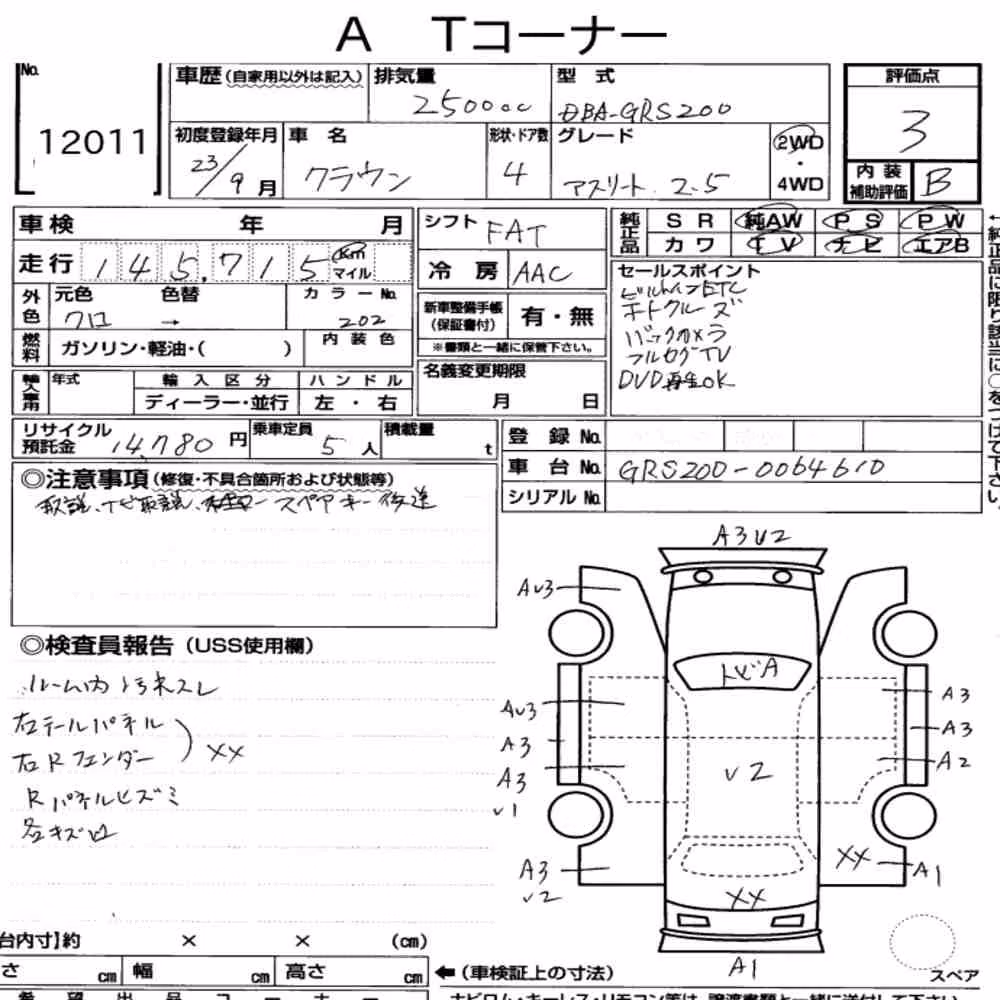 A Tコーナー
No.
12011
車歴(自家用以外は記入)
排気量
2500cc
型式
DBA-GRS200
評価点
3
初度登録年月
23/9月
車名
クラウン
形状・ドア数
4
グレード
アスリート 2.5
2WD
・
4WD
内装
補助評価
B
車検 年 月
走行 145,715 km
マイル
シフト FAT
冷房 AAC
純正品
SR 純AW PS PW
カワ TV ナビ エアB
外色
元色 色替 カラーNo.
クロ → 202
新車整備手帳
(保証書付)
有・無
※書類と一緒に保管下さい。
セールスポイント
ビルトインETC
オートクルーズ
バックカメラ
フルセグTV
DVD再生OK
燃料
ガソリン・軽油・( )
内装色
輸入車用
年式
輸入区分
ディーラー・並行
ハンドル
左・右
名義変更期限
月 日
リサイクル
預託金
14,780円
乗車定員
5人
積載量
t
登録No.
車台No. GRS200-0064610
シリアルNo.
←純正品に限り該当に○をつけて下さい。
◎注意事項(修復・不具合箇所および状態等)
取説、ナビ取説、スペアキー後送
◎検査員報告(USS使用欄)
ルーム内汚れスレ
左テールパネル
右Rフェンダー
XX
Rパネルヒズミ
各キズ凹
A3U2
AU3
トビA
AU3
A3
A3
U1
A3
A3
A2
U2
A3
U2
XX
A1
XX
A1
スペア
台内寸]約 × × (cm)
さ cm 幅 cm 高さ cm
←(車検証上の寸法)
希望出品コーナー
ナビロム・キーレス・リモコン等は、譲渡書類と一緒に送付して下さい